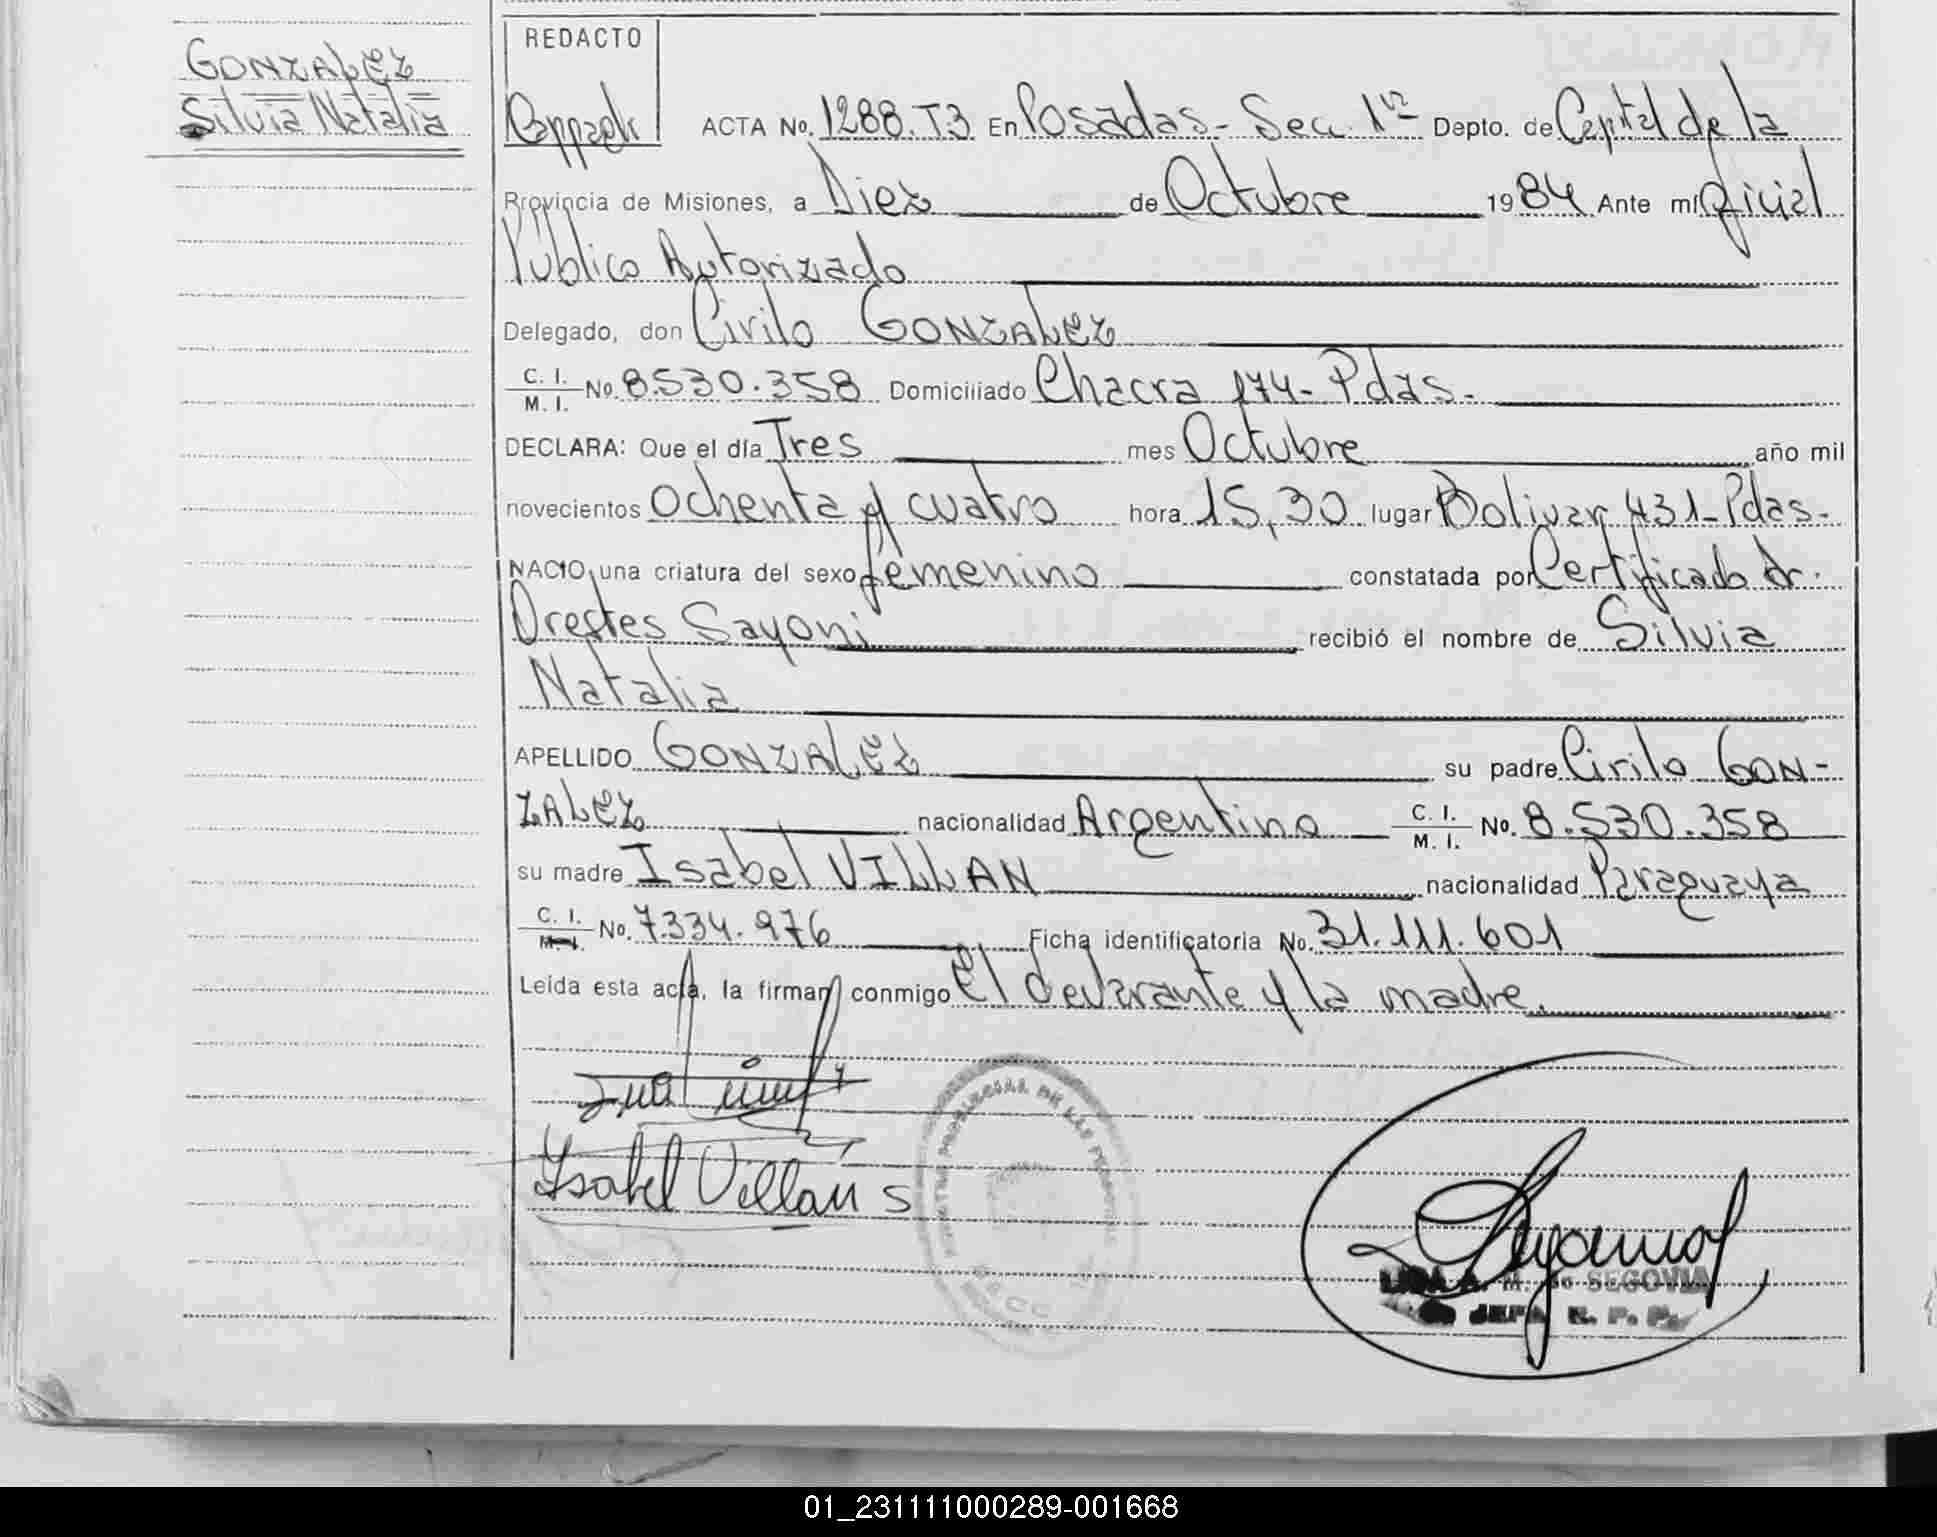 GONZALEZ
Silvia Natalia
REDACTO
ACTA No. 1288. T3 En Posadas - Sec. 1ra Depto. de Capital de la
Provincia de Misiones, a Diez de Octubre 1984 Ante mí Oficial
Público Autorizado
Delegado, don Cirilo GONZALEZ
C. I.
M. I. No. 8.530.358 Domiciliado Chacra 174 - Pdas.
DECLARA: Que el día Tres mes Octubre año mil
novecientos ochenta y cuatro hora 15,30 lugar Bolivar 431 - Pdas.
NACIO una criatura del sexo femenino constatada por Certificado Dr.
Orestes Sayoni recibió el nombre de Silvia
Natalia
APELLIDO GONZALEZ su padre Cirilo GON-
ZALEZ nacionalidad Argentino C. I.
M. I. No. 8.530.358
su madre Isabel VILLAN nacionalidad Paraguaya
C. I.
M. I. No. 7.334.976 Ficha identificatoria No. 31.111.601
Leída esta acta, la firman conmigo el declarante y la madre.
Ysabel Villan S
REGISTRO PROVINCIAL DE LAS PERSONAS
M. de SEGOVIA
JEFA R. P. P.
01_231111000289-001668